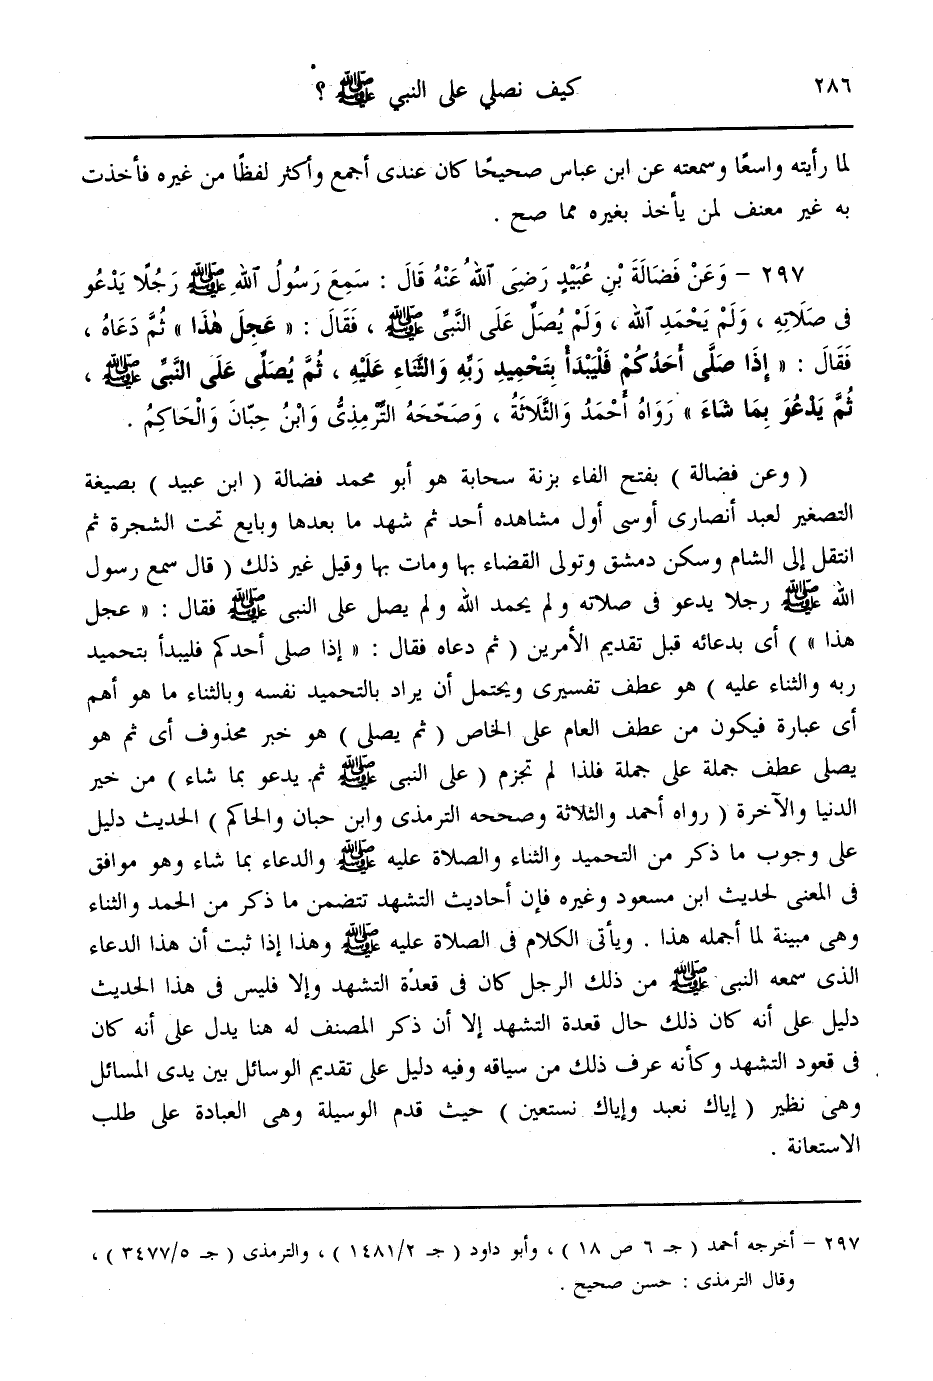 ٢٨٦ كيف نصلي على النبي ﷺ ؟
لما رأيته واسعًا وسمعته عن ابن عباس صحيحًا كان عندى أجمع وأكثر لفظًا من غيره فأخذت
به غير معنف لمن يأخذ بغيره مما صح .
٢٩٧ – وَعَنْ فَضَالَةَ بْنِ عُبَيْدٍ رَضِىَ ٱللهُ عَنْهُ قَالَ : سَمِعَ رَسُولُ ٱللهِ ﷺ رَجُلًا يَدْعُو
فِى صَلَاتِهِ ، وَلَمْ يَحْمَدِ ٱللهَ ، وَلَمْ يُصَلِّ عَلَى النَّبِىِّ ﷺ ، فَقَالَ : « عَجِلَ هٰذَا » ثُمَّ دَعَاهُ ،
فَقَالَ : « إِذَا صَلَّى أَحَدُكُمْ فَلْيَبْدَأْ بِتَحْمِيدِ رَبِّهِ وَالثَّنَاءِ عَلَيْهِ ، ثُمَّ يُصَلِّى عَلَى النَّبِىِّ ﷺ ،
ثُمَّ يَدْعُوَ بِمَا شَاءَ » رَوَاهُ أَحْمَدُ وَالثَّلَاثَةُ ، وَصَحَّحَهُ التِّرْمِذِىُّ وَابْنُ حِبَّانَ وَالْحَاكِمُ .
( وعن فضالة ) بفتح الفاء بزنة سحابة هو أبو محمد فضالة ( ابن عبيد ) بصيغة
التصغير لعبد أنصارى أوسى أول مشاهده أحد ثم شهد ما بعدها وبايع تحت الشجرة ثم
انتقل إلى الشام وسكن دمشق وتولى القضاء بها ومات بها وقيل غير ذلك ( قال سمع رسول
الله ﷺ رجلا يدعو فى صلاته ولم يحمد الله ولم يصل على النبى ﷺ فقال : « عجل
هذا » ) أى بدعائه قبل تقديم الأمرين ( ثم دعاه فقال : « إذا صلى أحدكم فليبدأ بتحميد
ربه والثناء عليه ) هو عطف تفسيرى ويحتمل أن يراد بالتحميد نفسه وبالثناء ما هو أهم
أى عبارة فيكون من عطف العام على الخاص ( ثم يصلى ) هو خبر محذوف أى ثم هو
يصلى عطف جملة على جملة فلذا لم تجزم ( على النبى ﷺ ثم يدعو بما شاء ) من خير
الدنيا والآخرة ( رواه أحمد والثلاثة وصححه الترمذى وابن حبان والحاكم ) الحديث دليل
على وجوب ما ذكر من التحميد والثناء والصلاة عليه ﷺ والدعاء بما شاء وهو موافق
فى المعنى لحديث ابن مسعود وغيره فإن أحاديث التشهد تتضمن ما ذكر من الحمد والثناء
وهى مبينة لما أجمله هذا . ويأتى الكلام فى الصلاة عليه ﷺ وهذا إذا ثبت أن هذا الدعاء
الذى سمعه النبى ﷺ من ذلك الرجل كان فى قعدة التشهد وإلا فليس فى هذا الحديث
دليل على أنه كان ذلك حال قعدة التشهد إلا أن ذكر المصنف له هنا يدل على أنه كان
فى قعود التشهد وكأنه عرف ذلك من سياقه وفيه دليل على تقديم الوسائل بين يدى المسائل
وهى نظير ( إياك نعبد وإياك نستعين ) حيث قدم الوسيلة وهى العبادة على طلب
الاستعانة .
٢٩٧ – أخرجه أحمد ( جـ ٦ ص ١٨ ) ، وأبو داود ( جـ ١٤٨١/٢ ) ، والترمذى ( جـ ٣٤٧٧/٥ ) ،
وقال الترمذى : حسن صحيح .